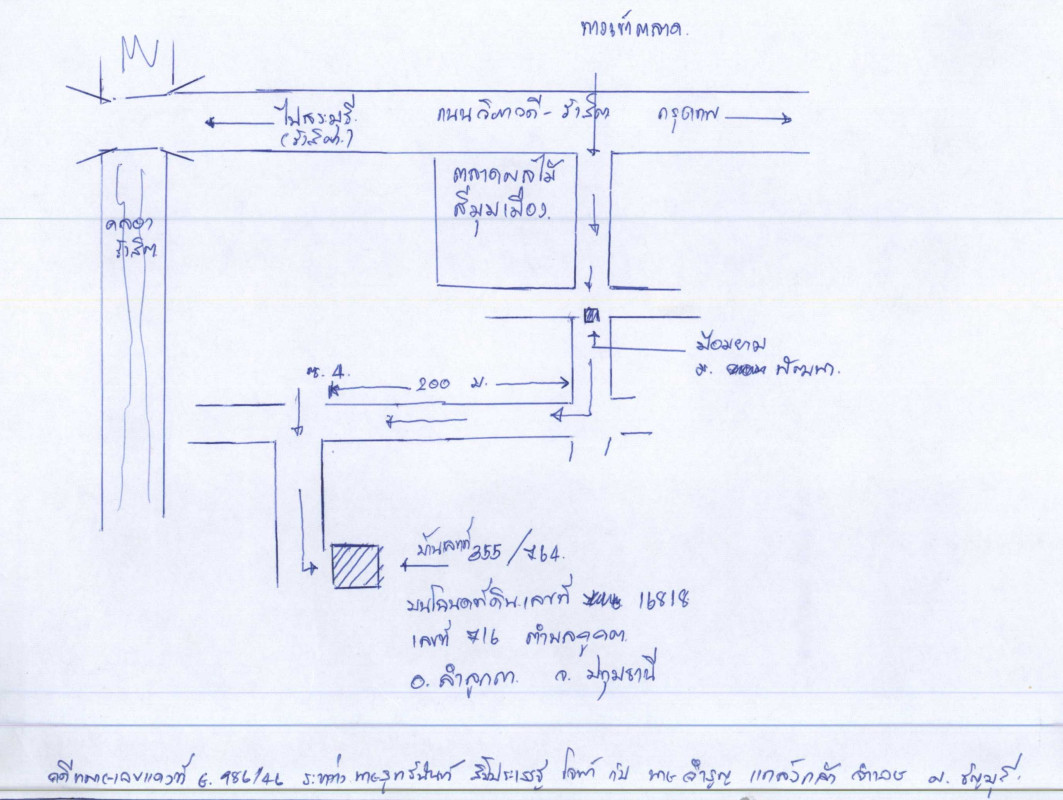 ทางเข้าตลาด.
ไปสระบุรี
(รังสิต)
ถนนวิภาวดี - รังสิต
กรุงเทพ
ตลาดผลไม้
สี่มุมเมือง
คลอง
รังสิต
ป้อมยาม
ม. พัฒนา.
ซ. 4.
200 ม.
บ้านเลขที่ 355/764.
บนโฉนดที่ดินเลขที่ 16818
เลขที่ 716 ตำบลคูคต
อ. ลำลูกกา. จ. ปทุมธานี
คดีหมายเลขแดงที่ 986/46 ระหว่าง โจทก์ กับ จำเลย ธัญบุรี.